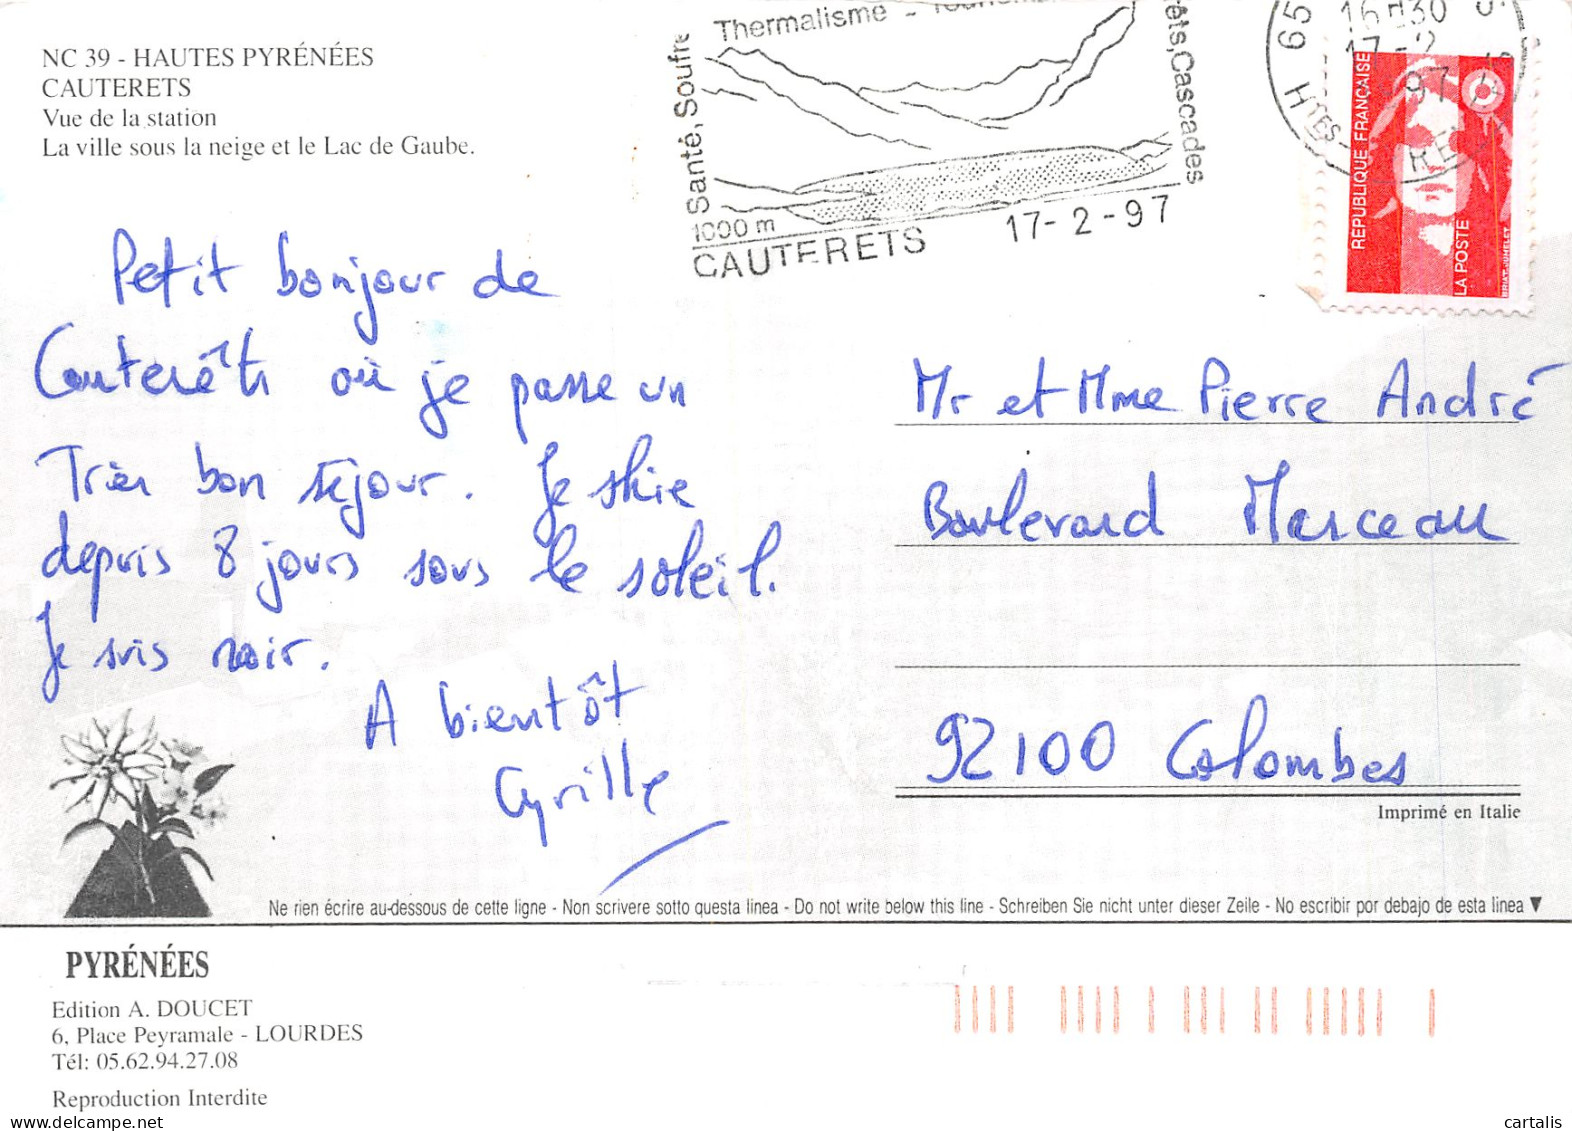 NC 39 - HAUTES PYRÉNÉES
CAUTERETS
Vue de la station
La ville sous la neige et le Lac de Gaube.
Thermalisme -
Santé, Soufre
Cascades
1000 m
CAUTERETS 17-2-97
16H30
17-2
97
65
HTES-
RÉPUBLIQUE FRANÇAISE
LA POSTE
BRIAT-JUMELET
Petit bonjour de
Cauterêts où je passe un
Très bon séjour. Je skie
depuis 8 jours sous le soleil.
Je suis noir.
A bientôt
Cyrille
Mr et Mme Pierre André
Boulevard Marceau
92100 Colombes
Imprimé en Italie
Ne rien écrire au-dessous de cette ligne - Non scrivere sotto questa linea - Do not write below this line - Schreiben Sie nicht unter dieser Zeile - No escribir por debajo de esta linea ▼
PYRÉNÉES
Edition A. DOUCET
6, Place Peyramale - LOURDES
Tél: 05.62.94.27.08
Reproduction Interdite
cartalis